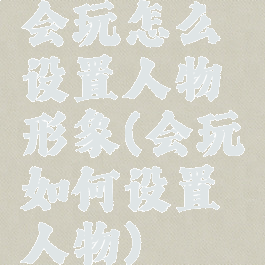 会玩怎么
设置人物
形象(会玩
如何设置
人物)